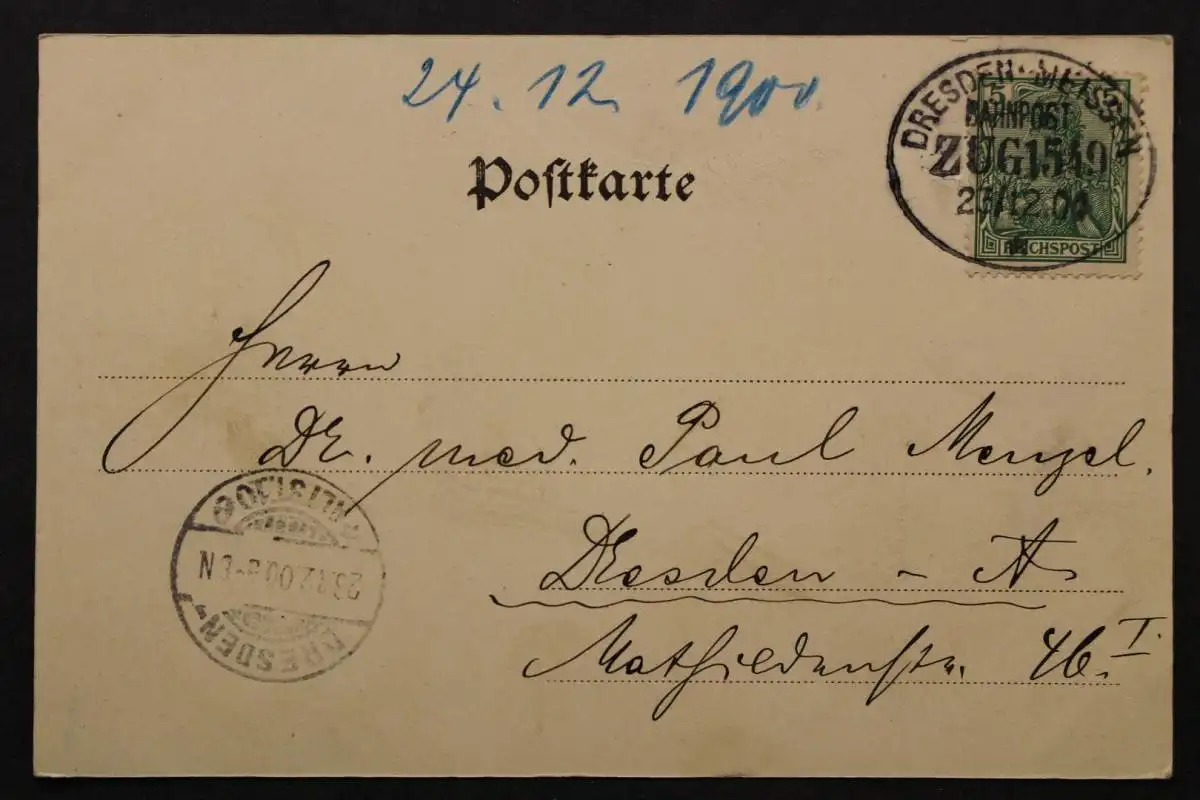 24. 12. 1900
Poſtkarte
DRESDEN-MEISSEN
BAHNPOST
ZUG 1549
23/12.00
5
REICHSPOST
Herrn
Dr. med. Paul Menzel.
Dresden - A
Mathildenstr. 46. I.
DRESDEN-